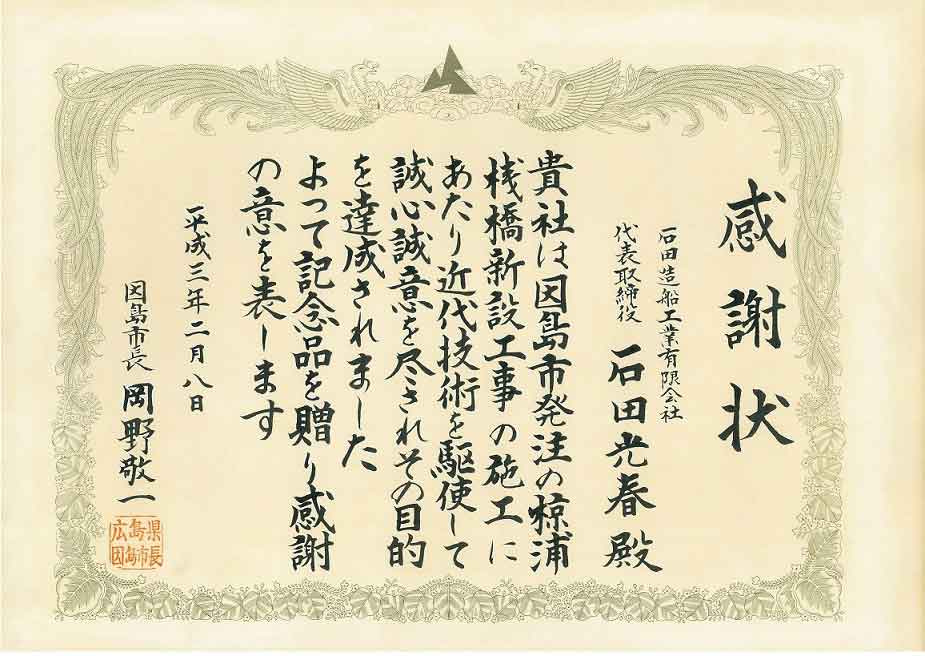 感謝状
石田造船工業有限会社
代表取締役 石田光春殿
貴社は因島市発注の椋浦
桟橋新設工事の施工に
あたり近代技術を駆使して
誠心誠意を尽されその目的
を達成されました
よって記念品を贈り感謝
の意を表します
平成三年二月八日
因島市長 岡野敬一
広島県
因島市長